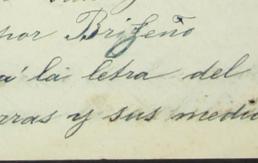 por Brizeño
á la letra del
rras y sus medi